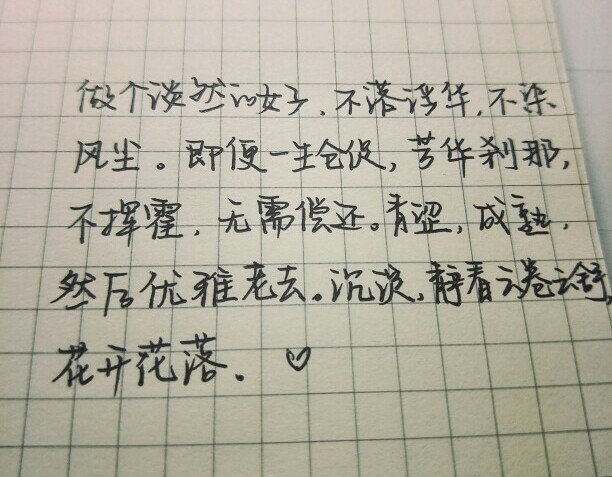 做个淡然的女子，不落浮华，不染
风尘。即便一生仓促，芳华刹那，
不挥霍，无需偿还。青涩，成熟，
然后优雅老去。沉淀，静看云卷云舒
花开花落。♡